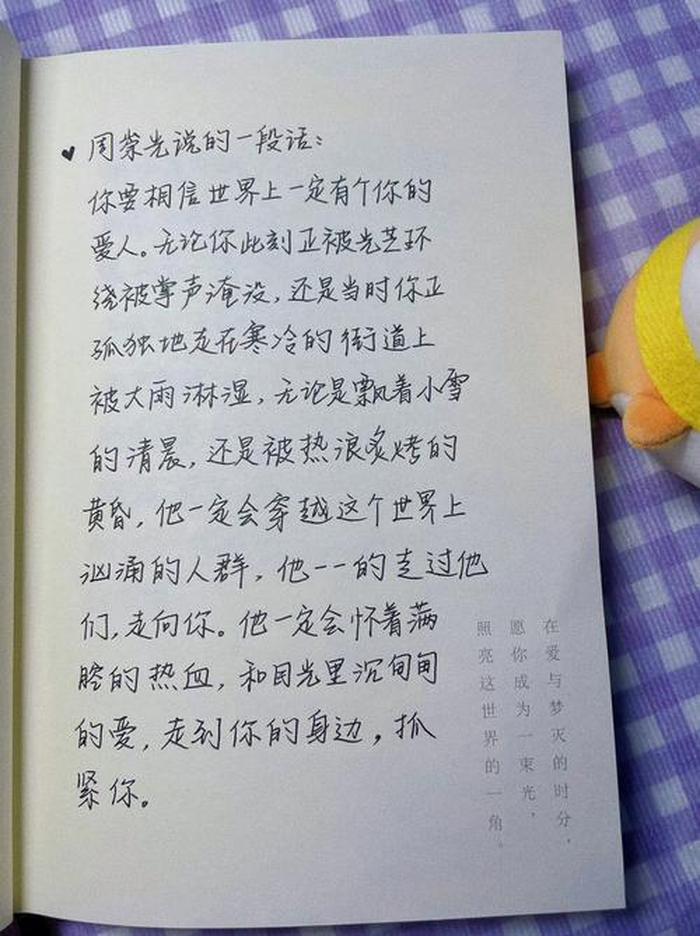 ♥ 周荣光说的一段话：
你要相信世界上一定有个你的
爱人。无论你此刻正被光芒环
绕被掌声淹没，还是当时你正
孤独地走在寒冷的街道上
被大雨淋湿，无论是飘着小雪
的清晨，还是被热浪炙烤的
黄昏，他一定会穿越这个世界上
汹涌的人群，他一一的走过他
们，走向你。他一定会怀着满
腔的热血，和目光里沉甸甸
的爱，走到你的身边，抓
紧你。
在爱与梦灭的时分，
愿你成为一束光，
照亮这世界的一角。